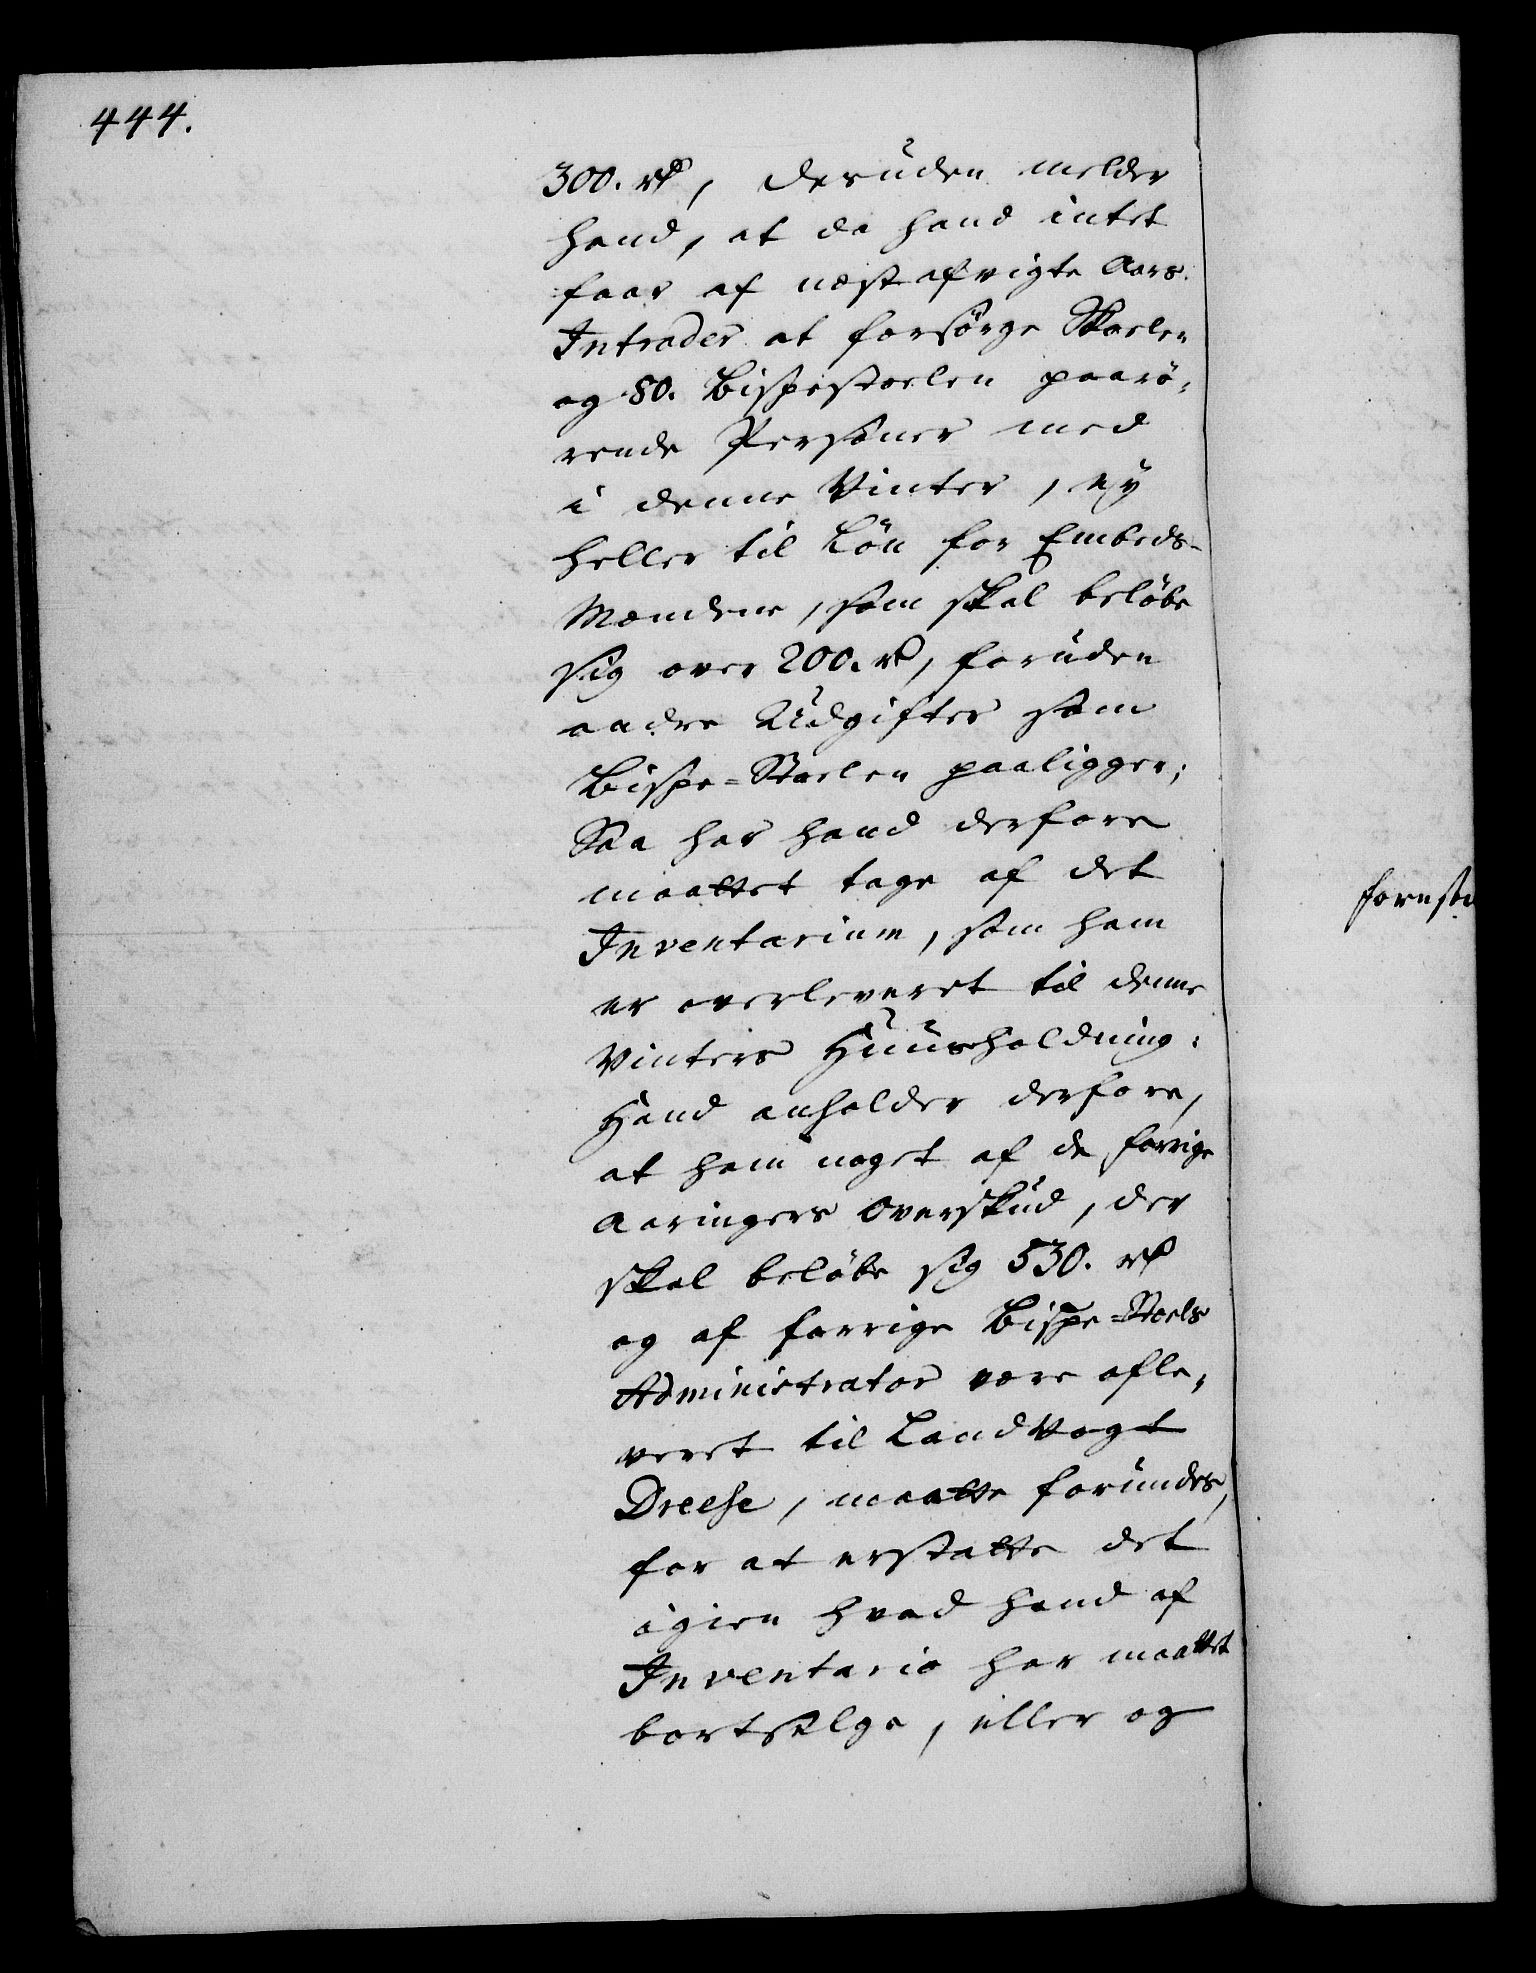 444.
300. rd, desuden melder
hand, at da hand intet
faar af næstafvigte Aars
Intrader at forsørge Skoelen
og 80. Bispestoelen paarø,
rende Personer med
i denne Vinter, ey
heller til Løn for Embeds-
Mændene, som skal beløbe
sig over 200. rd, foruden
andre Udgifter som
Bispe-Stoelen paaligger;
Saa har hand derfore
maattet tage af det
Inventarium, som ham
er overleveret til denne
Vinters Huusholdning.
Hand anholder derfore,
at ham noget af de forrige
Aaringers Overskud, der
skal beløbe sig 530. rd
og af forrige Bispe-Stoels
Administrator være afle,
veret til LandVogt
Dreese, maatte forundes,
for at erstatte det
igien hvad hand af
Inventario har maattet
bortselge, eller og